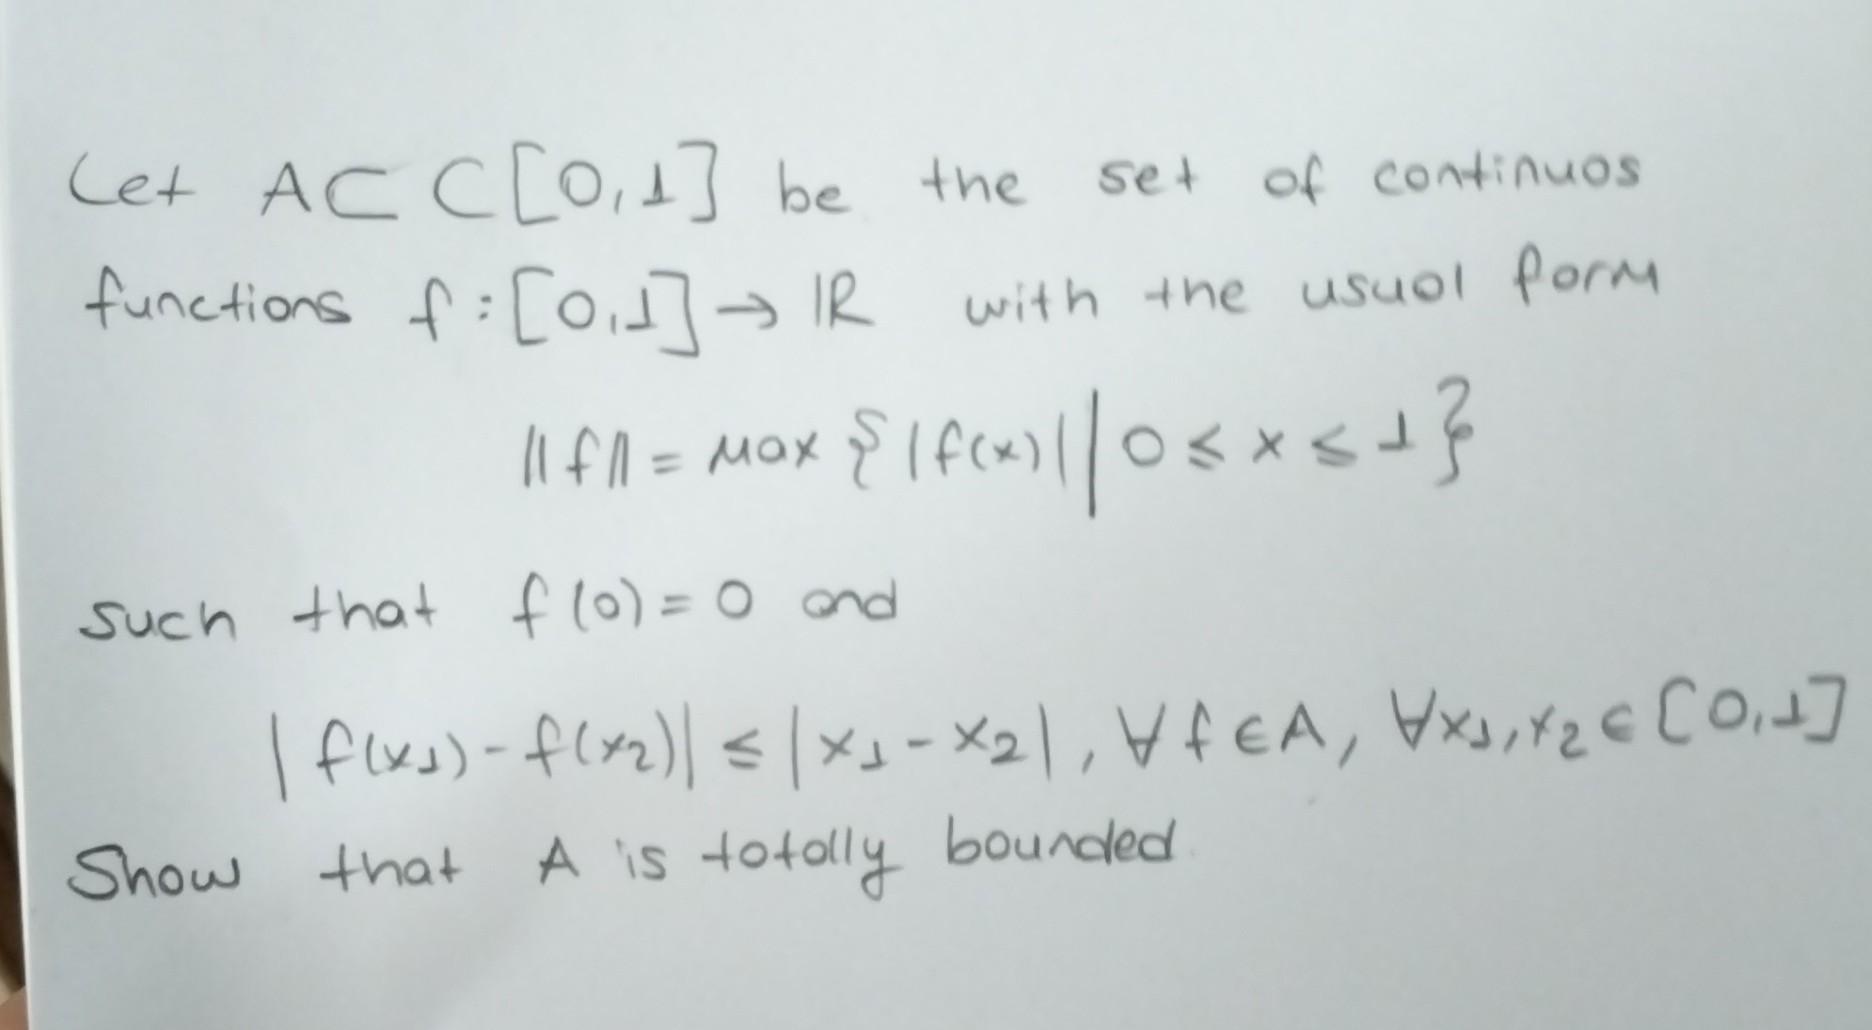 Let A ⊂ C[0,1] be the set of continuos
functions f:[0,1] → IR with the usual form
||f|| = max {|f(x)| | 0 ≤ x ≤ 1}
such that f(0) = 0 and
|f(x₁) - f(x₂)| ≤ |x₁ - x₂|, ∀ f ∈ A, ∀x₁,x₂ ∈ [0,1]
Show that A is totally bounded.